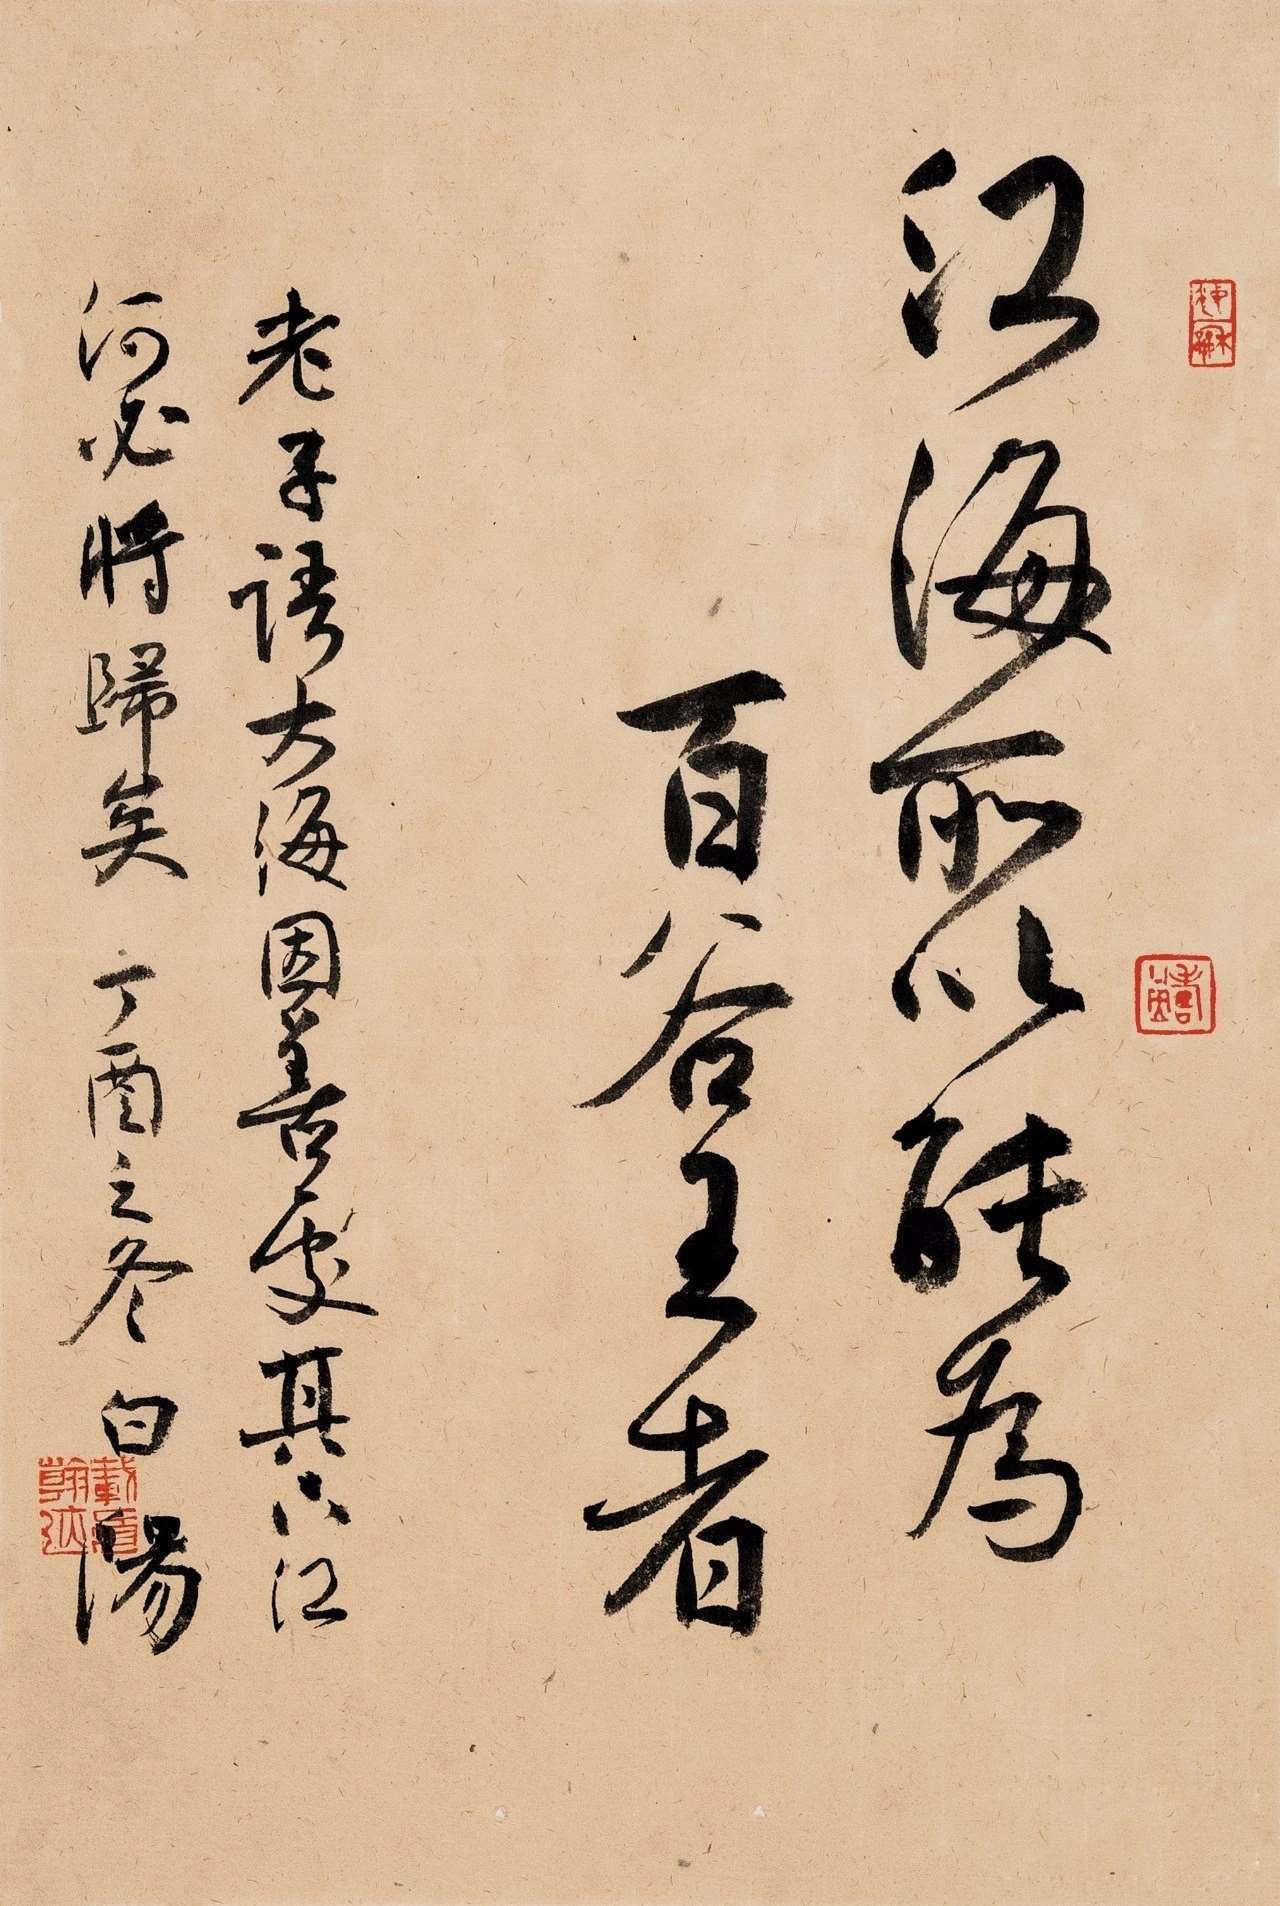 江海所以能為
百谷王者
老子語大海因善處其下江
河必將歸矣丁酉之冬白陽